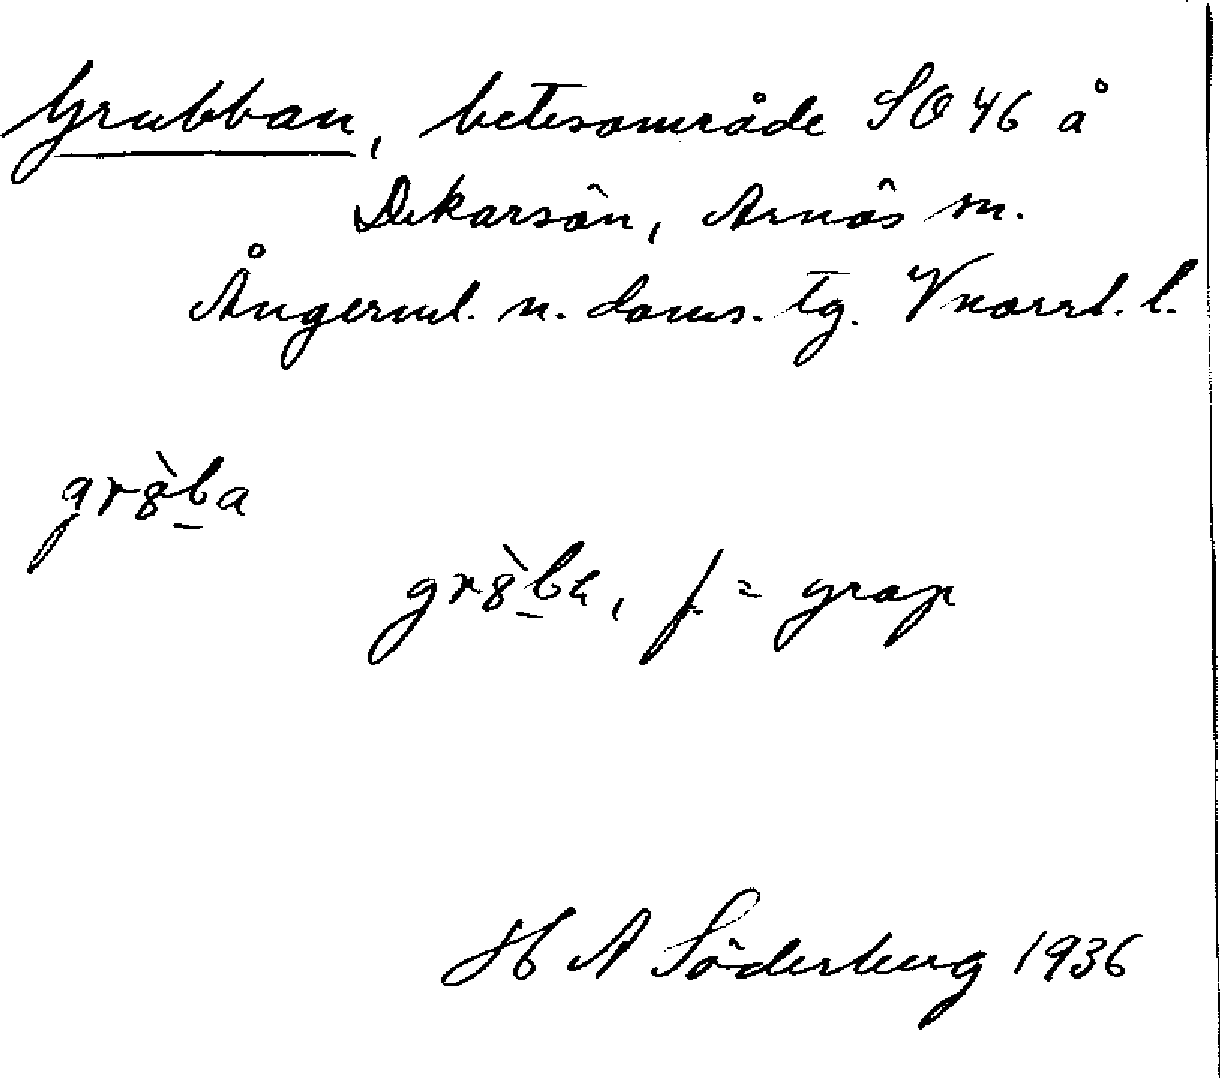 Grubban, betesområde SO 46 å
Dekarsön, Arnäs sn.
Ångerml. n. doms. tg. Vnorrl. l.
gr8̀b̲a
gr8̀b̲a, f = grop
H A Söderberg 1936